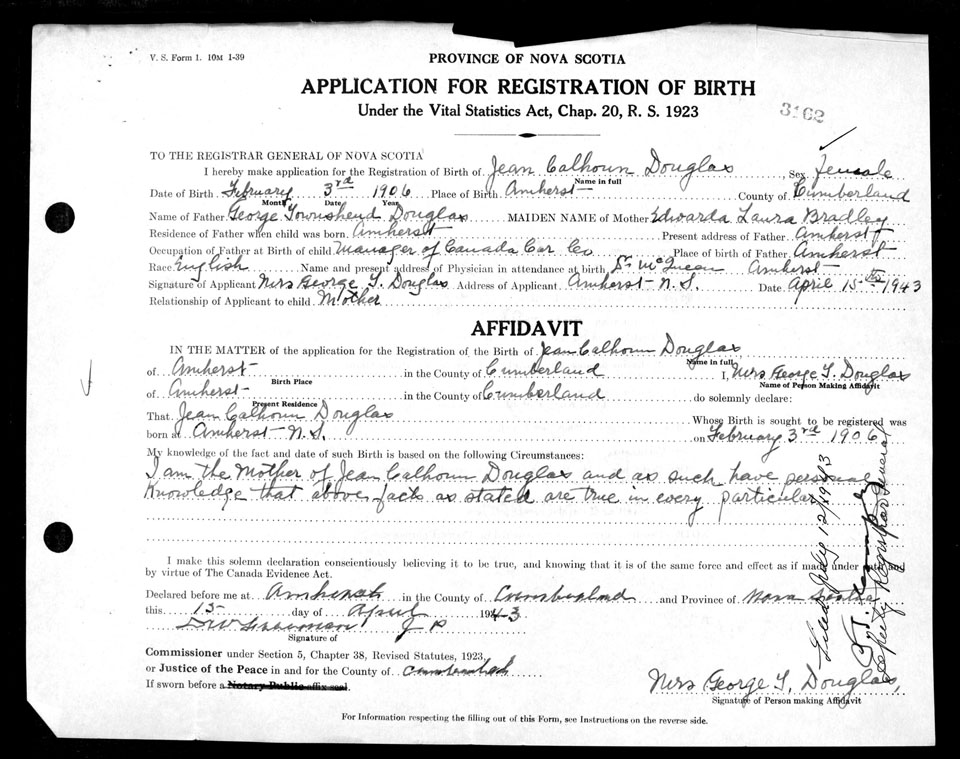 V. S. Form 1. 10M 1-39
PROVINCE OF NOVA SCOTIA
APPLICATION FOR REGISTRATION OF BIRTH
Under the Vital Statistics Act, Chap. 20, R. S. 1923
3162
TO THE REGISTRAR GENERAL OF NOVA SCOTIA
I hereby make application for the Registration of Birth of Jean Calhoun Douglas Sex Female
Name in full
Date of Birth February 3rd 1906 Place of Birth Amherst County of Cumberland
Month Date Year
Name of Father George Townshend Douglas MAIDEN NAME of Mother Edwarda Laura Bradley
Residence of Father when child was born Amherst Present address of Father Amherst
Occupation of Father at Birth of child Manager of Canada Car Co Place of birth of Father Amherst
Race English Name and present address of Physician in attendance at birth Dr McQueen Amherst
Signature of Applicant Mrs George T. Douglas Address of Applicant Amherst N.S. Date April 15th 1943
Relationship of Applicant to child Mother
AFFIDAVIT
IN THE MATTER of the application for the Registration of the Birth of Jean Calhoun Douglas
Name in full
of Amherst in the County of Cumberland I, Mrs George T. Douglas
Birth Place Name of Person Making Affidavit
of Amherst in the County of Cumberland do solemnly declare:
Present Residence
That Jean Calhoun Douglas Whose Birth is sought to be registered was
born at Amherst N.S. on February 3rd 1906
My knowledge of the fact and date of such Birth is based on the following Circumstances:
I am the Mother of Jean Calhoun Douglas and as such have personal
Knowledge that above facts as stated are true in every particular
I make this solemn declaration conscientiously believing it to be true, and knowing that it is of the same force and effect as if made under oath
by virtue of The Canada Evidence Act.
Declared before me at Amherst in the County of Cumberland and Province of Nova Scotia
this 15 day of April 1943
J P
Signature of
Commissioner under Section 5, Chapter 38, Revised Statutes, 1923,
or Justice of the Peace in and for the County of Cumberland
If sworn before a Notary Public affix seal.
Mrs George T. Douglas
Signature of Person making Affidavit
For Information respecting the filling out of this Form, see Instructions on the reverse side.
Filed July 12/1943
Deputy Registrar General